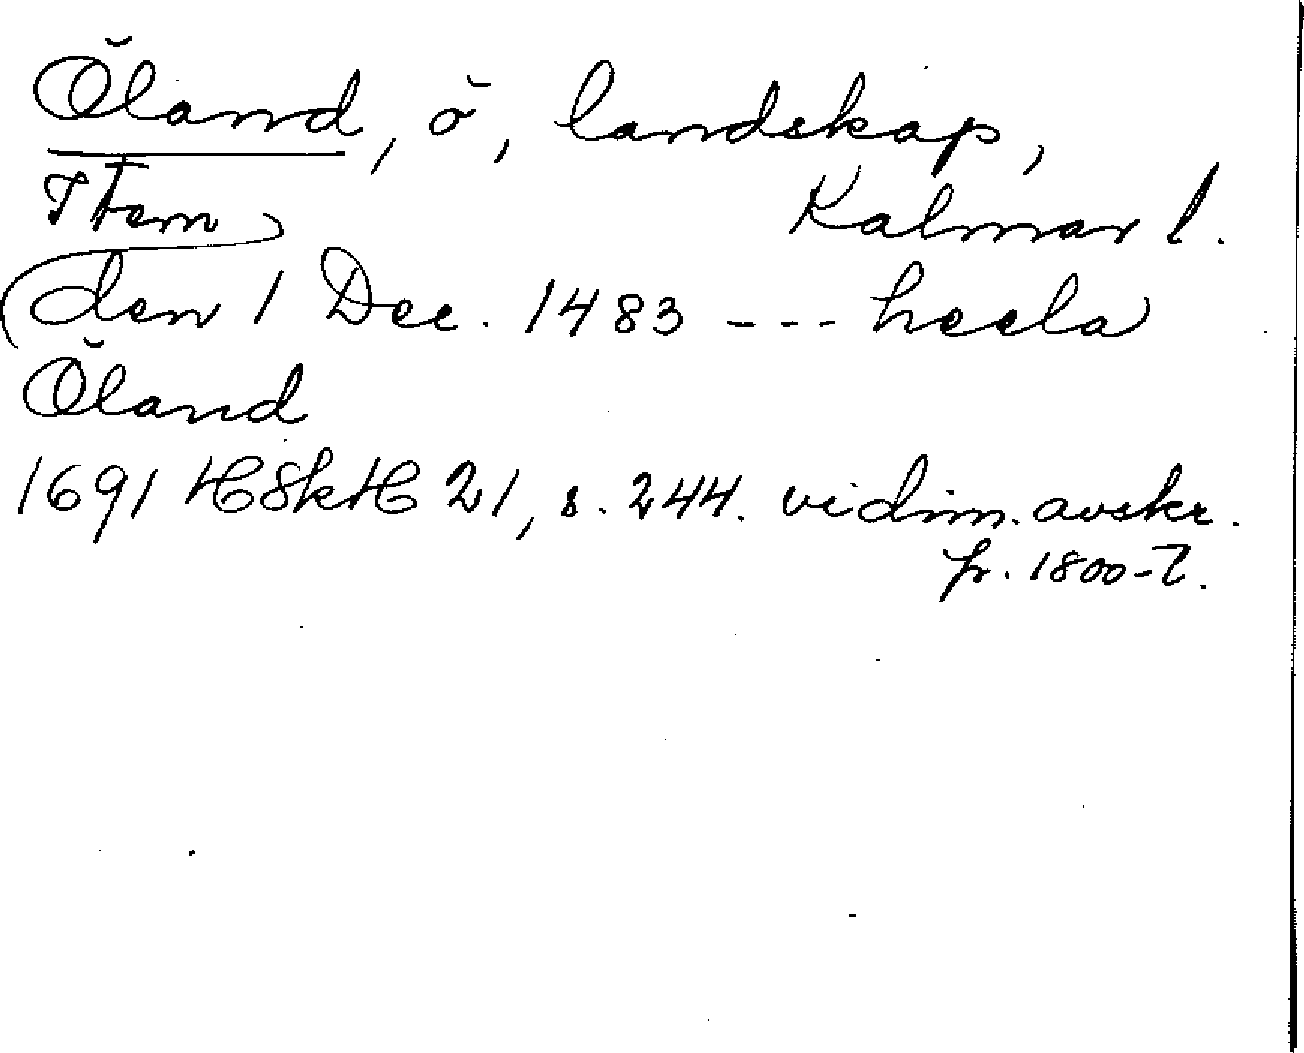 Öland, ö, landskap,
Item Kalmar l.
den 1 Dec. 1483 --- heela
Öland
1691 HSkH 21, s. 244. vidim. avskr.
fr. 1800-t.